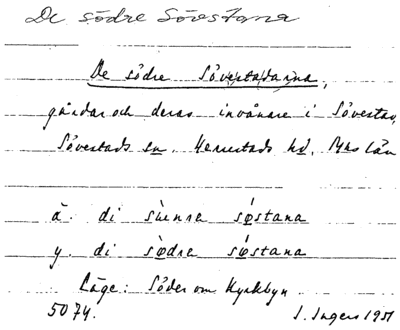 De södre Sövestana
De södre Sövestadarna,
gårdar och deras invånare i Sövestad,
Sövestads sn. Herrestads hd. Mhs län
ä. di sùenra søstana
y. di sødra søstana
Läge: Söder om Kyrkbyn
5074. I. Ingers 1951